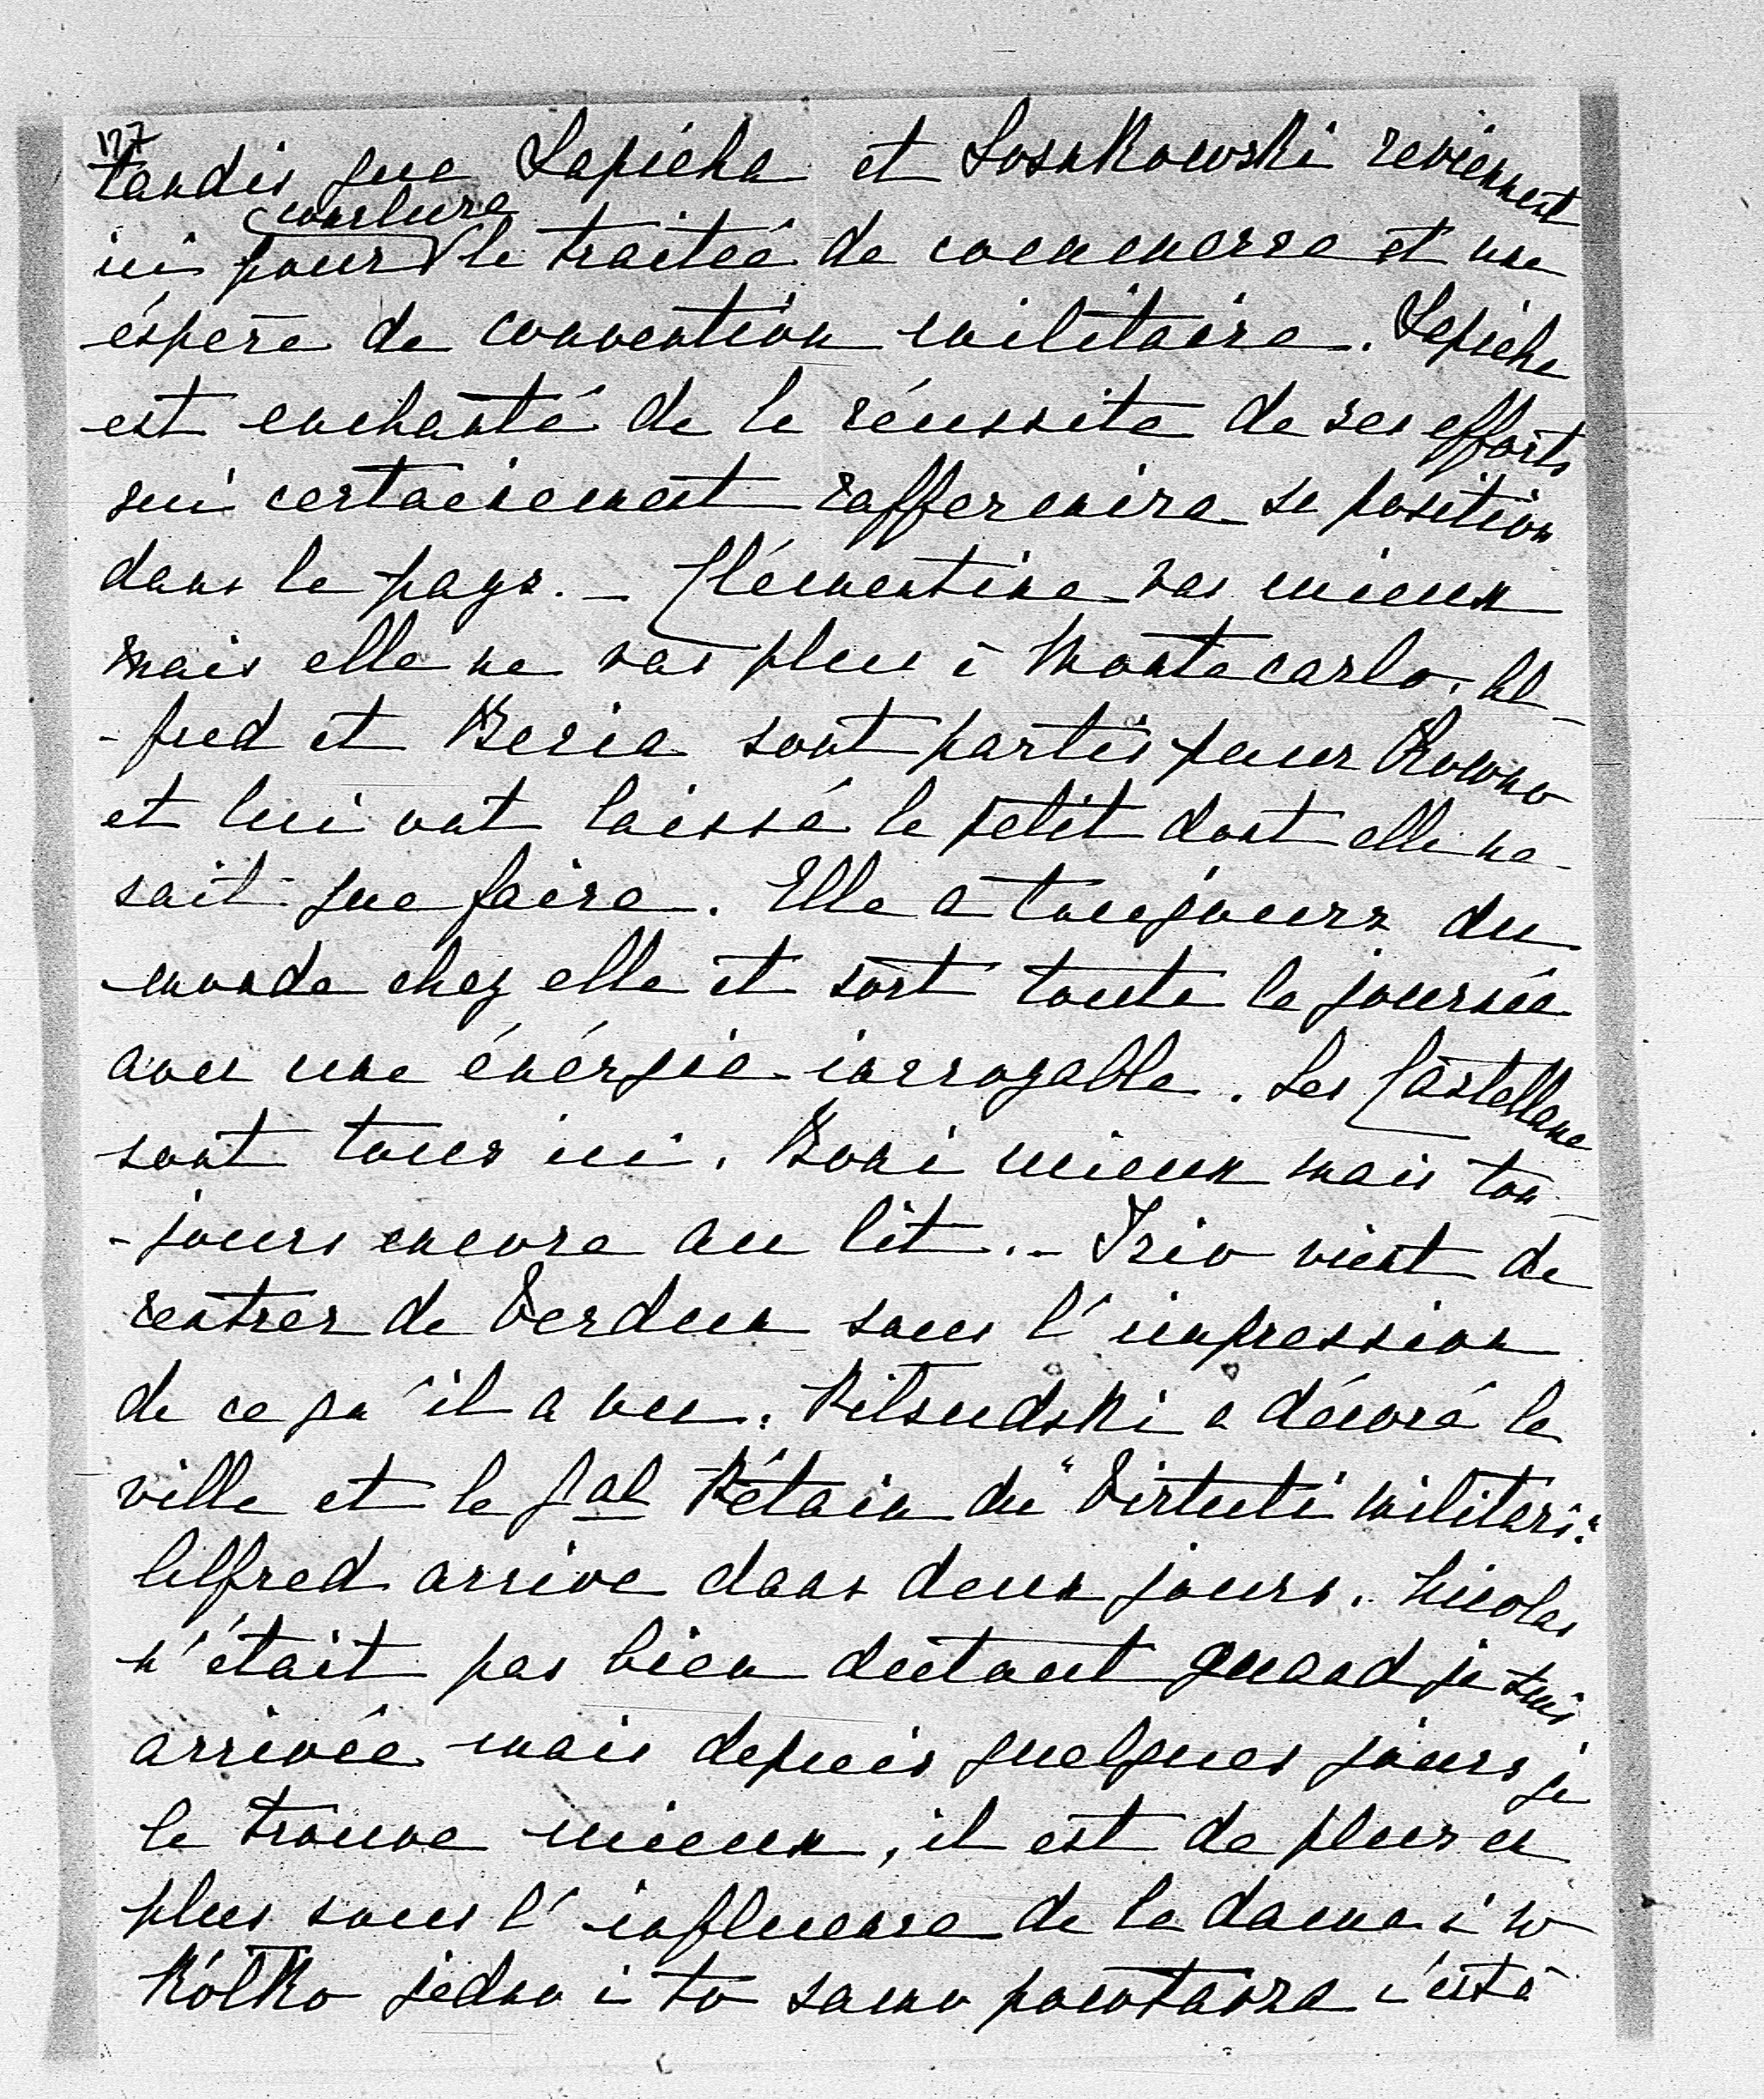 127
tandis que Sapieha et Sosnkowski reviennent
conclure
ici pour le traiteé de commerce et une
éspèce de convention militaire. Sapieha
est enchanté de la réussite de ses efforts
qui certainement raffermira sa position
dans le pays. - Clémentine vas mieux
mais elle ne vas plus à Montecarlo. Al-
-fred et Beria sont partis pour Rowno
et lui ont laissé le petit dont elle ne
sait que faire. Elle a toujours du
monde chez elle et sort toute la journée
avec une énérgie incroyable. Les Castellane
sont tous ici. Boni mieux mais tou-
-jours encore au lit. - Izio vient de
rentrer de Verdun sous l'impression
de ce qu'il a vu. Pilsudski a décoré la
ville et le gal Pétain du "Virtuti militari."
Alfred arrive dans deux jours. Nicolas
n'était pas bien dutout quand je suis
arrivée mais depuis quelques jours je
le trouve mieux, il est de plus en
plus sous l'influence de la dame i w
kółko jedno i to samo powtarza c'est à